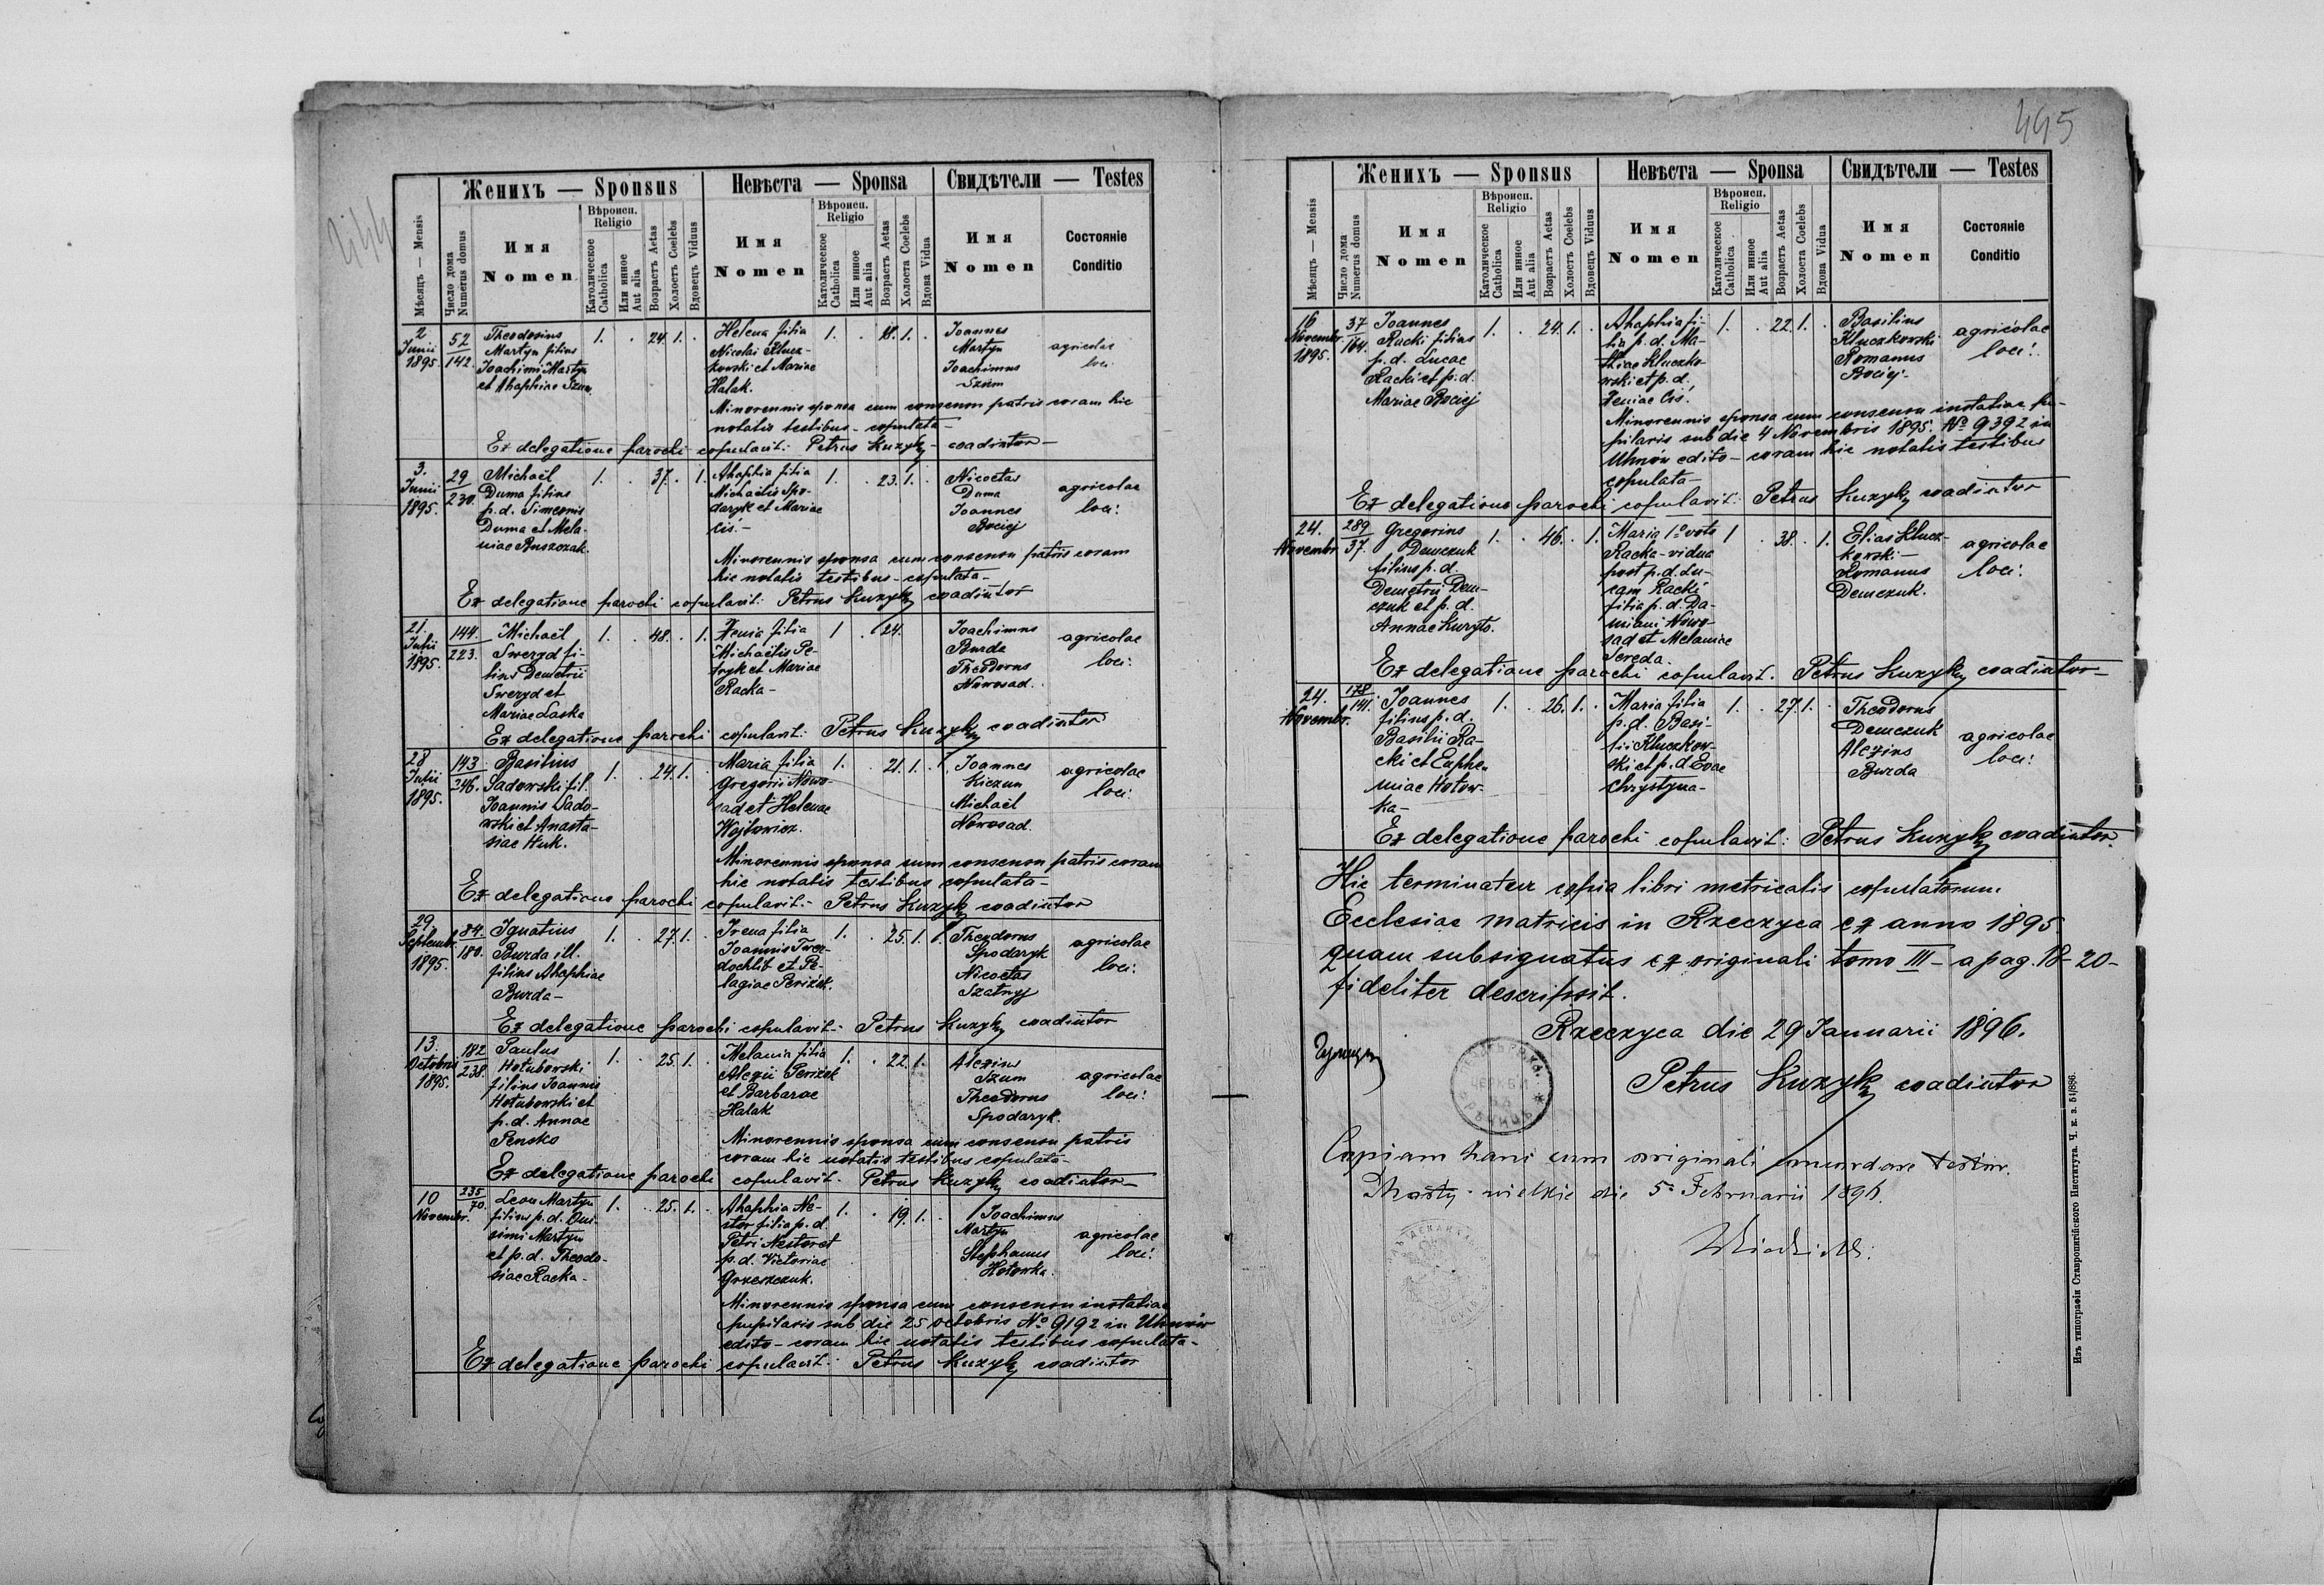 495
Женихъ — Sponsus Невѣста — Sponsa Свидѣтели — Testes
Мѣсяцъ — Mensis
Число дома
Numerus domus
Имя
Nomen
Вѣроисп.
Religio
Католическое
Catholica
Или инное
Aut alia
Возрастъ Aetas
Холостъ Coelebs
Вдовецъ Viduus
Имя
Nomen
Вѣроисп.
Religio
Католическое
Catholica
Или инное
Aut alia
Возрастъ Aetas
Холоста Coelebs
Вдова Vidua
Имя
Nomen
Состояніе
Conditio
2
Junii
1895.
52
142.
Theodosius
Martyn filius
Joachimi Martyn
et Ahaphiae Szum
1. . 24. 1. .
Helena filia
Nicolai Klucz-
kowski et Mariae
Halak.
1. . 18. 1. .
Joannes
Martyn
Joachimus
Szum
agricolae
loci
Minorennis sponsa cum consensu patris coram hic
notatis testibus - copulata -
Ex delegatione parochi copulavit: Petrus Kuzyk coadiutor -
3.
Junii
1895.
29
230.
Michaël
Duma filius
p. d. Simeonis
Duma et Mela-
niae Buszczak.
1. . 37. . 1.
Ahaphia filia
Michaëlis Spo-
daryk et Mariae
Cis. -
1. . 23. 1. .
Nicoetas
Duma
Joannes
Bociej
agricolae
loci.
Minorennis sponsa cum consensu patris coram
hic notatis testibus - copulata -
Ex delegatione parochi copulavit: Petrus Kuzyk coadiutor
21.
Julii
1895.
144.
223.
Michaël
Sweryd fi-
lius Demetrii
Sweryd et
Mariae Laska
1. . 48. . 1.
Xenia filia
Michaëlis Pe-
tryk et Mariae
Racka -
1 . 24.
Joachimus
Burda
Theodorus
Nowosad.
agricolae
loci.
Ex delegatione parochi copulavit: Petrus Kuzyk coadiutor
28
Julii
1895.
143
246.
Basilius
Sadowski fil.
Joannis Sado-
wski et Anasta-
siae Huk.
1. . 24. 1. .
Maria filia
Gregorii Nowo-
sad et Helenae
Wojtowicz.
1. . 21. 1. .
Joannes
Kiczun
Michaël
Nowosad.
agricolae
loci.
Minorennis sponsa cum consensu patris coram
hic notatis testibus copulata -
Ex delegatione parochi copulavit: - Petrus Kuzyk coadiutor
29
Septembr.
1895.
84.
180.
Ignatius
Burda ill.
filius Ahaphiae
Burda -
1. . 27. 1. .
Irena filia
Joannis Twer-
dochlib et Pe-
lagiae Perizok.
1. . 25. 1. .
Theodorus
Spodaryk
Nicoetas
Szatnyj
agricolae
loci.
Ex delegatione parochi copulavit: Petrus Kuzyk coadiutor
13.
Octobris
1895.
182
238.
Paulus
Hołubowski
filius Joannis
Hołubowski et
p. d. Annae
Pensko
1. . 25. 1. .
Melania filia
Alexii Perizok
et Barbarae
Halak
1. . 22. 1.
Alexius
Szum
Theodorus
Spodaryk.
agricolae
loci.
Minorennis sponsa cum consensu patris
coram hic notatis testibus copulata -
Ex delegatione parochi copulavit: Petrus Kuzyk coadiutor -
10
Novembr.
235
70.
Leon Martyn
filius p. d. Oni-
simi Martyn
et p. d. Theodo-
siae Racka -
1. . 25. 1. .
Ahaphia Ne-
stor filia p. d.
Petri Nestor et
p. d. Victoriae
Grzeszczuk.
1. . 19. 1. .
Joachimus
Martyn
Stephanus
Hołowka.
agricolae
loci.
Minorennis sponsa cum consensu instatiae
pupilaris sub die 25 octobris No 9192 in Uhnów
edito - coram hic notatis testibus copulata -
Ex delegatione parochi copulavit: Petrus Kuzyk coadiutor
Женихъ — Sponsus Невѣста — Sponsa Свидѣтели — Testes
Мѣсяцъ — Mensis
Число дома
Numerus domus
Имя
Nomen
Вѣроисп.
Religio
Католическое
Catholica
Или инное
Aut alia
Возрастъ Aetas
Холостъ Coelebs
Вдовецъ Viduus
Имя
Nomen
Вѣроисп.
Religio
Католическое
Catholica
Или инное
Aut alia
Возрастъ Aetas
Холоста Coelebs
Вдова Vidua
Имя
Nomen
Состояніе
Conditio
16
Novembr.
1895.
37
164.
Joannes
Racki filius
p. d. Lucae
Racki et p. d.
Mariae Bociej
1. . 24. 1. .
Ahaphia fi-
lia p. d. Ma-
thiae Kluczko-
wski et p. d.
Xeniae Cis.
1. . 22. 1. .
Basilius
Kluczkowski
Romanus
Bociej -
agricolae
loci.
Minorennis sponsa cum consensu instatiae pu-
pilaris sub die 4 Novembris 1895. No 9392 in
Uhnów edito - coram hic notatis testibus
copulata -
Ex delegatione parochi copulavit: Petrus Kuzyk coadiutor
24.
Novembr
289
37.
Gregorius
Demczuk
filius p. d.
Demetrii Dem-
czuk et p. d.
Annae Kuryło.
1. . 46. . 1.
Maria 1o voto
Racka - vidua
post p. d. Lu-
cam Racki
filia p. d. Da-
miani Nowo-
sad et Melaniae
Sereda.
1 . 38. . 1.
Elias Klucz-
kowski -
Romanus
Demczuk.
agricolae
loci.
Ex delegatione parochi copulavit. Petrus Kuzyk coadiutor -
24.
Novembr.
178
141.
Joannes
filius p. d.
Basilii Ra-
cki et Euphe-
miae Hołow-
ka -
1. . 26. 1. .
Maria filia
p. d. Basi-
lii Kluczkow-
ski et p. d Evae
Chrystyna -
1. . 27. 1. .
Theodorus
Demczuk
Alexius
Burda
agricolae
loci.
Ex delegatione parochi copulavit: Petrus Kuzyk coadiutor.
Hic terminatur copia libri metricalis copulatorum
Ecclesiae matricis in Rzeczyca ex anno 1895.
quam subsignatus ex originali tomo III - a pag. 18 - 20 -
fideliter descripsit.
Rzeczyca die 29 Januarii 1896.
Petrus Kuzyk coadiutor
Copiam hanc cum originali concordare testor.
wielkie die 5. Februarii 1896.
Изъ типографіи Ставропигійского Института. Ч. к. з. 51/886.